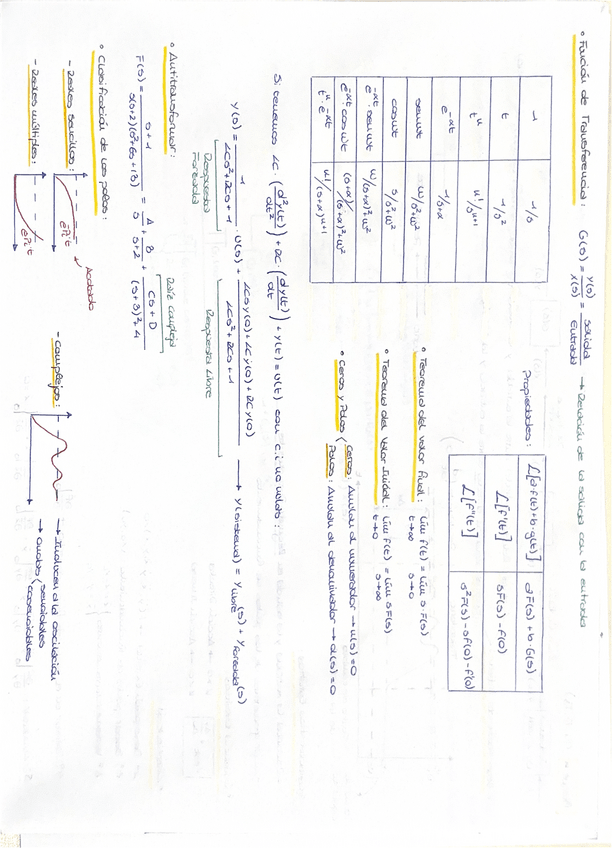 • Función de Transferencia: G(s) = Y(s)/X(s) = Salida/Entrada → Relación de la salida con la entrada
1 | 1/s
t | 1/s²
tⁿ | n!/sⁿ⁺¹
e^-αt | 1/s+α
senωt | ω/s²+ω²
cosωt | s/s²+ω²
e^-αt · senωt | ω/(s+α)²+ω²
e^-αt · cosωt | (s+α)/(s+α)²+ω²
tⁿ e^-αt | n!/(s+α)ⁿ⁺¹
Propiedades:
L[af(t)+b·g(t)] | aF(s)+b·G(s)
L[f'(t)] | sF(s)-f(0)
L[f''(t)] | s²F(s)-sf(0)-f'(0)
• Teorema del valor Final: lim f(t) = lim s·F(s)
t→∞ s→0
• Teorema del Valor Inicial: lim f(t) = lim sF(s)
t→0 s→∞
• Ceros y Polos
Ceros: Anulan al numerador → n(s)=0
Polos: Anulan al denominador → d(s)=0
Si tenemos LC·(d²y(t)/dt²) + RC·(dy(t)/dt) + y(t) = u(t) con c.i. no nulas:
Y(s) = 1/LCs²+RCs+1 · U(s) + LCsy(0)+LCy(0)+RCy(0)/LCs²+RCs+1 → Y(sistema) = Ylibre(s) + Yforzada(s)
Respuesta Forzada
Respuesta Libre
• Antitransformar:
Raíz compleja
F(s) = s+1/s(s+2)(s²+6s+13) = A/s + B/s+2 + Cs+D/(s+3)²+4
• Clasificación de los polos:
- Reales sencillos:
e^Pi·t
Acotada
- Reales múltiples:
e^Pi·t
- Complejos:
→ Involucran a la oscilación
→ Ondas (senoidales
cosenoidales